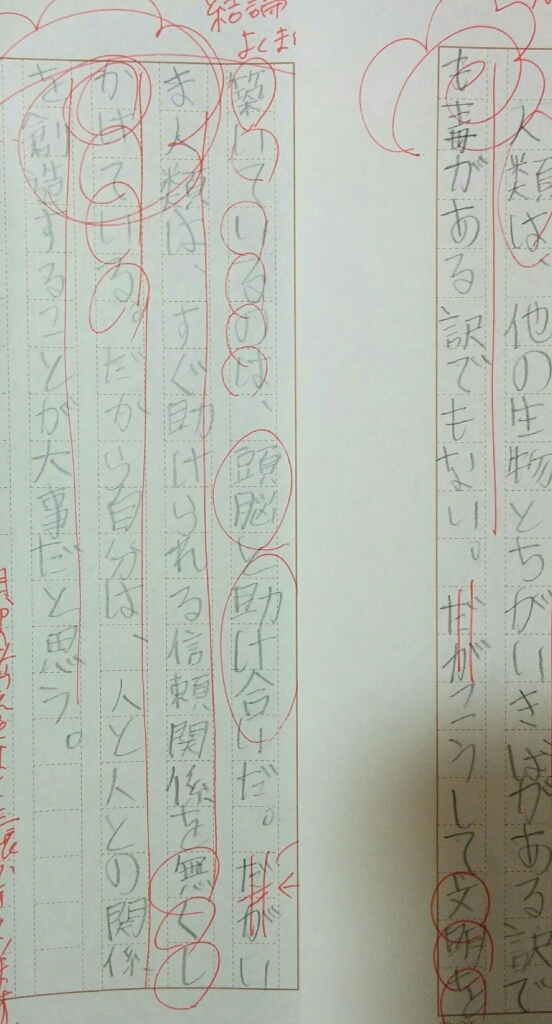 人類は、他の生物とちがいきばがある訳で
も毒がある訳でもない。だがこうして文明を
築いているのは、頭脳と助け合いだ。だがい
ま人類は、すぐ助けられる信頼関係を無くし
かけている。だから自分は、人と人との関係
を創造することが大事だと思う。
結論
よくま